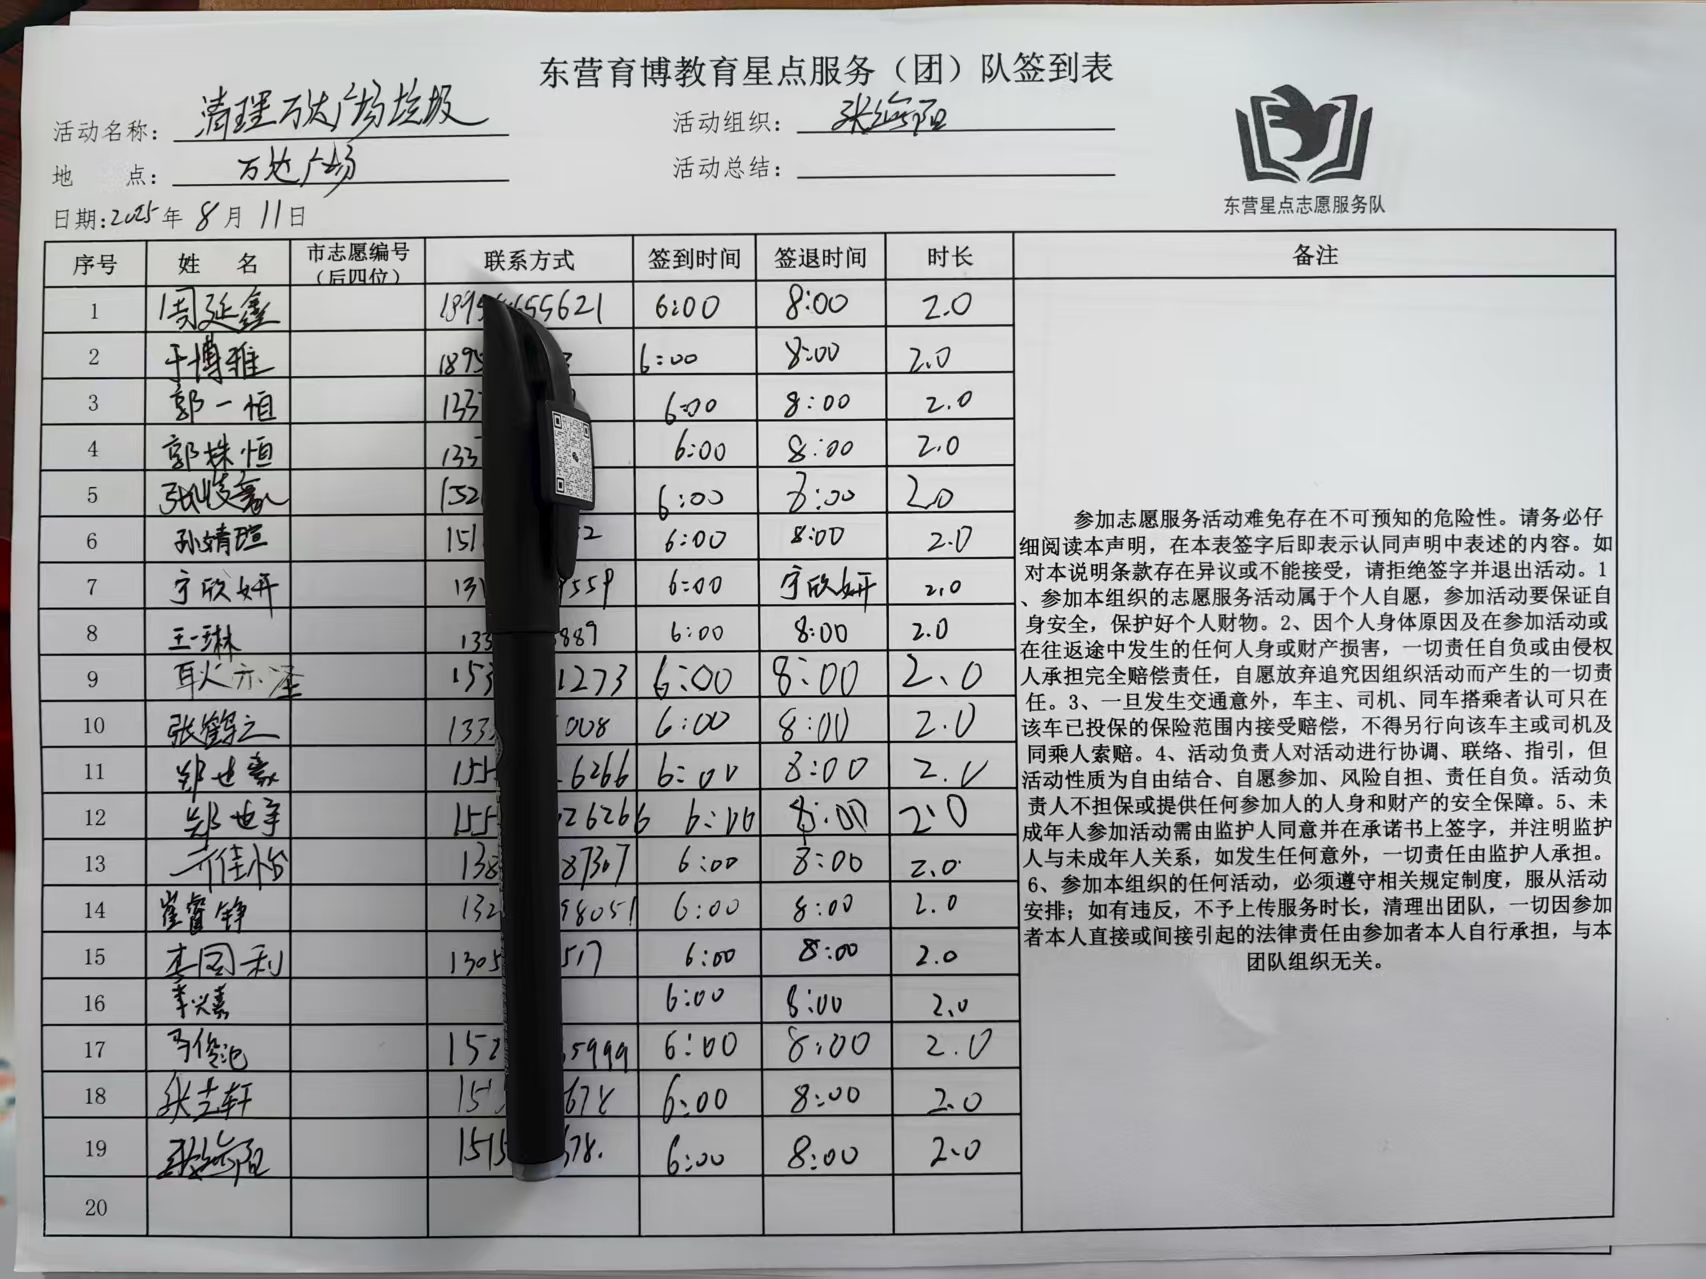 东营育博教育星点服务（团）队签到表
活动名称： 清理万达广场垃圾 活动组织：
地 点： 万达广场 活动总结：
东营星点志愿服务队
日期:2025年 8月 11日
序号 姓 名 市志愿编号（后四位） 联系方式 签到时间 签退时间 时长 备注
1 周延鑫 655621 6:00 8:00 2.0
2 于博雅 189 6:00 8:00 2.0
3 郭一恒 133 6:00 8:00 2.0
4 郭姝恒 133 6:00 8:00 2.0
5 152 6:00 8:00 2.0
6 孙婧瑄 151 2 6:00 8:00 2.0
7 宁欣妍 131 559 6:00 宁欣妍 2.0
8 王琳 133 889 6:00 8:00 2.0
9 153 1273 6:00 8:00 2.0
10 张鹤之 133 008 6:00 8:00 2.0
11 郑世豪 155 6266 6:00 8:00 2.0
12 郑世 155 26266 6:00 8:00 2.0
13 佳怡 138 87307 6:00 8:00 2.0
14 崔 铮 132 98051 6:00 8:00 2.0
15 李国利 1305 517 6:00 8:00 2.0
16 李兴嘉 6:00 8:00 2.0
17 马俊 152 5999 6:00 8:00 2.0
18 张 轩 151 678 6:00 8:00 2.0
19 1515 678. 6:00 8:00 2.0
20
参加志愿服务活动难免存在不可预知的危险性。请务必仔
细阅读本声明，在本表签字后即表示认同声明中表述的内容。如
对本说明条款存在异议或不能接受，请拒绝签字并退出活动。1
、参加本组织的志愿服务活动属于个人自愿，参加活动要保证自
身安全，保护好个人财物。2、因个人身体原因及在参加活动或
在往返途中发生的任何人身或财产损害，一切责任自负或由侵权
人承担完全赔偿责任，自愿放弃追究因组织活动而产生的一切责
任。3、一旦发生交通意外，车主、司机、同车搭乘者认可只在
该车已投保的保险范围内接受赔偿，不得另行向该车主或司机及
同乘人索赔。4、活动负责人对活动进行协调、联络、指引，但
活动性质为自由结合、自愿参加、风险自担、责任自负。活动负
责人不担保或提供任何参加人的人身和财产的安全保障。5、未
成年人参加活动需由监护人同意并在承诺书上签字，并注明监护
人与未成年人关系，如发生任何意外，一切责任由监护人承担。
6、参加本组织的任何活动，必须遵守相关规定制度，服从活动
安排；如有违反，不予上传服务时长，清理出团队，一切因参加
者本人直接或间接引起的法律责任由参加者本人自行承担，与本
团队组织无关。